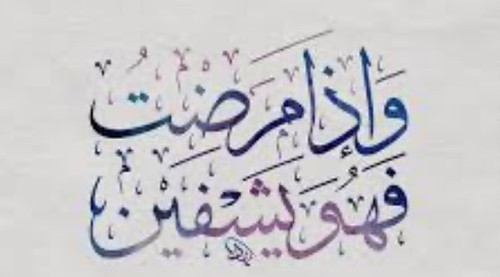 وَإِذَا مَرِضْتُ
فَهُوَ يَشْفِينِ